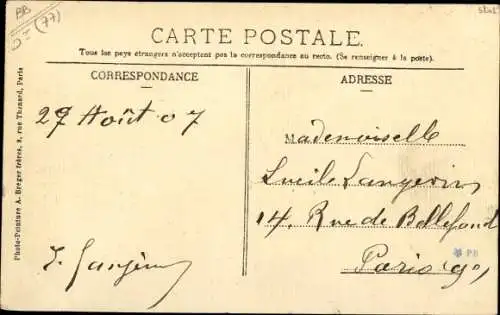 BB
(77)
CARTE POSTALE
Tous les pays étrangers n'acceptent pas la correspondance au recto. (Se renseigner à la poste).
CORRESPONDANCE
ADRESSE
27 Août 07
Mademoiselle
Lucile Langevin
14, Rue de Bellefond
Paris (9e)
PB
Photo-Peinture A. Breger frères, 9, rue Thénard, Paris